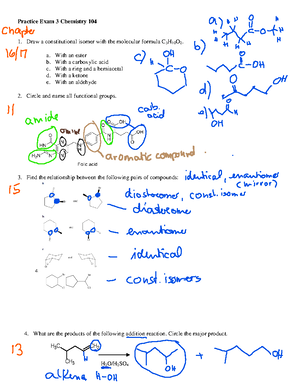 Practice Exam 3 Chemistry 104
Chapter
16/17
1. Draw a constitutional isomer with the molecular formula C₇H₁₄O₂.
a. With an ester
b. With a carboxylic acid
c. With a ring and a hemiacetal
d. With a ketone
e. With an aldehyde
a)
b)
c)
d)
e)
OH
11
2. Circle and name all functional groups.
amide
carb.
acid
aromatic compound
Folic acid
15
3. Find the relationship between the following pairs of compounds:
identical, enantiomer
(mirror)
diastereomer, const. isomer
→ diastereomer
→ enantiomer
→ identical
→ const. isomers
4. What are the products of the following addition reaction. Circle the major product.
13
H₃C
CH₂
H₂O/H₂SO₄
CH₃
+
OH
OH
alkene H-OH